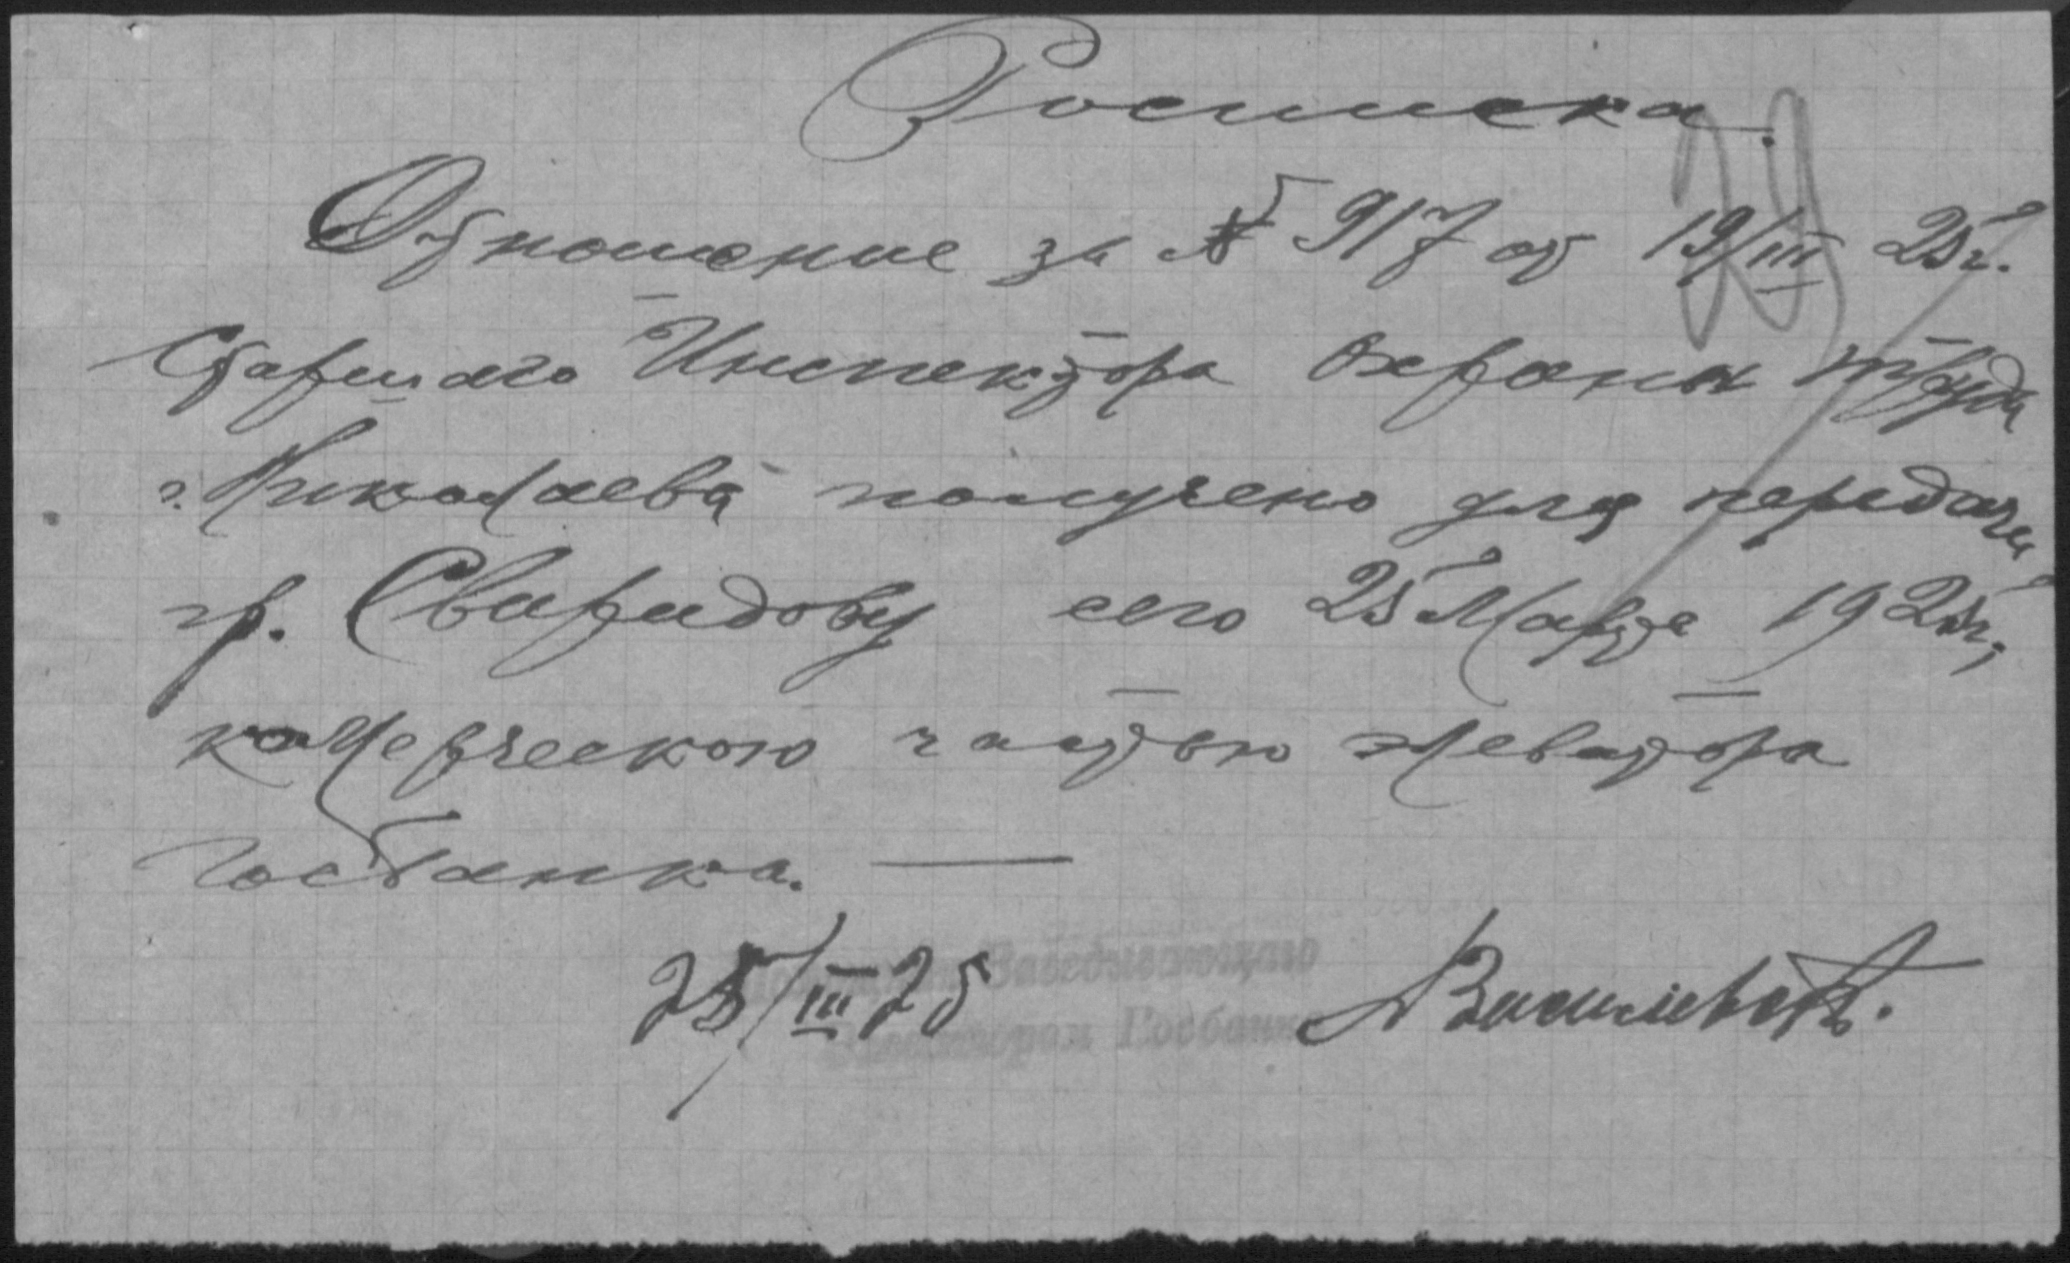 Росписка.
29
Отношение за № 917 от 19/III 25г.
Старшаго Инспектора Охраны труда
г. Николаева получено для передачи
гр. Свиридову сего 25 Марта 1925г.,
комерческою частью элеватора
Госбанка. —
25/III 25 Василевский.
Заведывающаго
Элеватором Госбанка